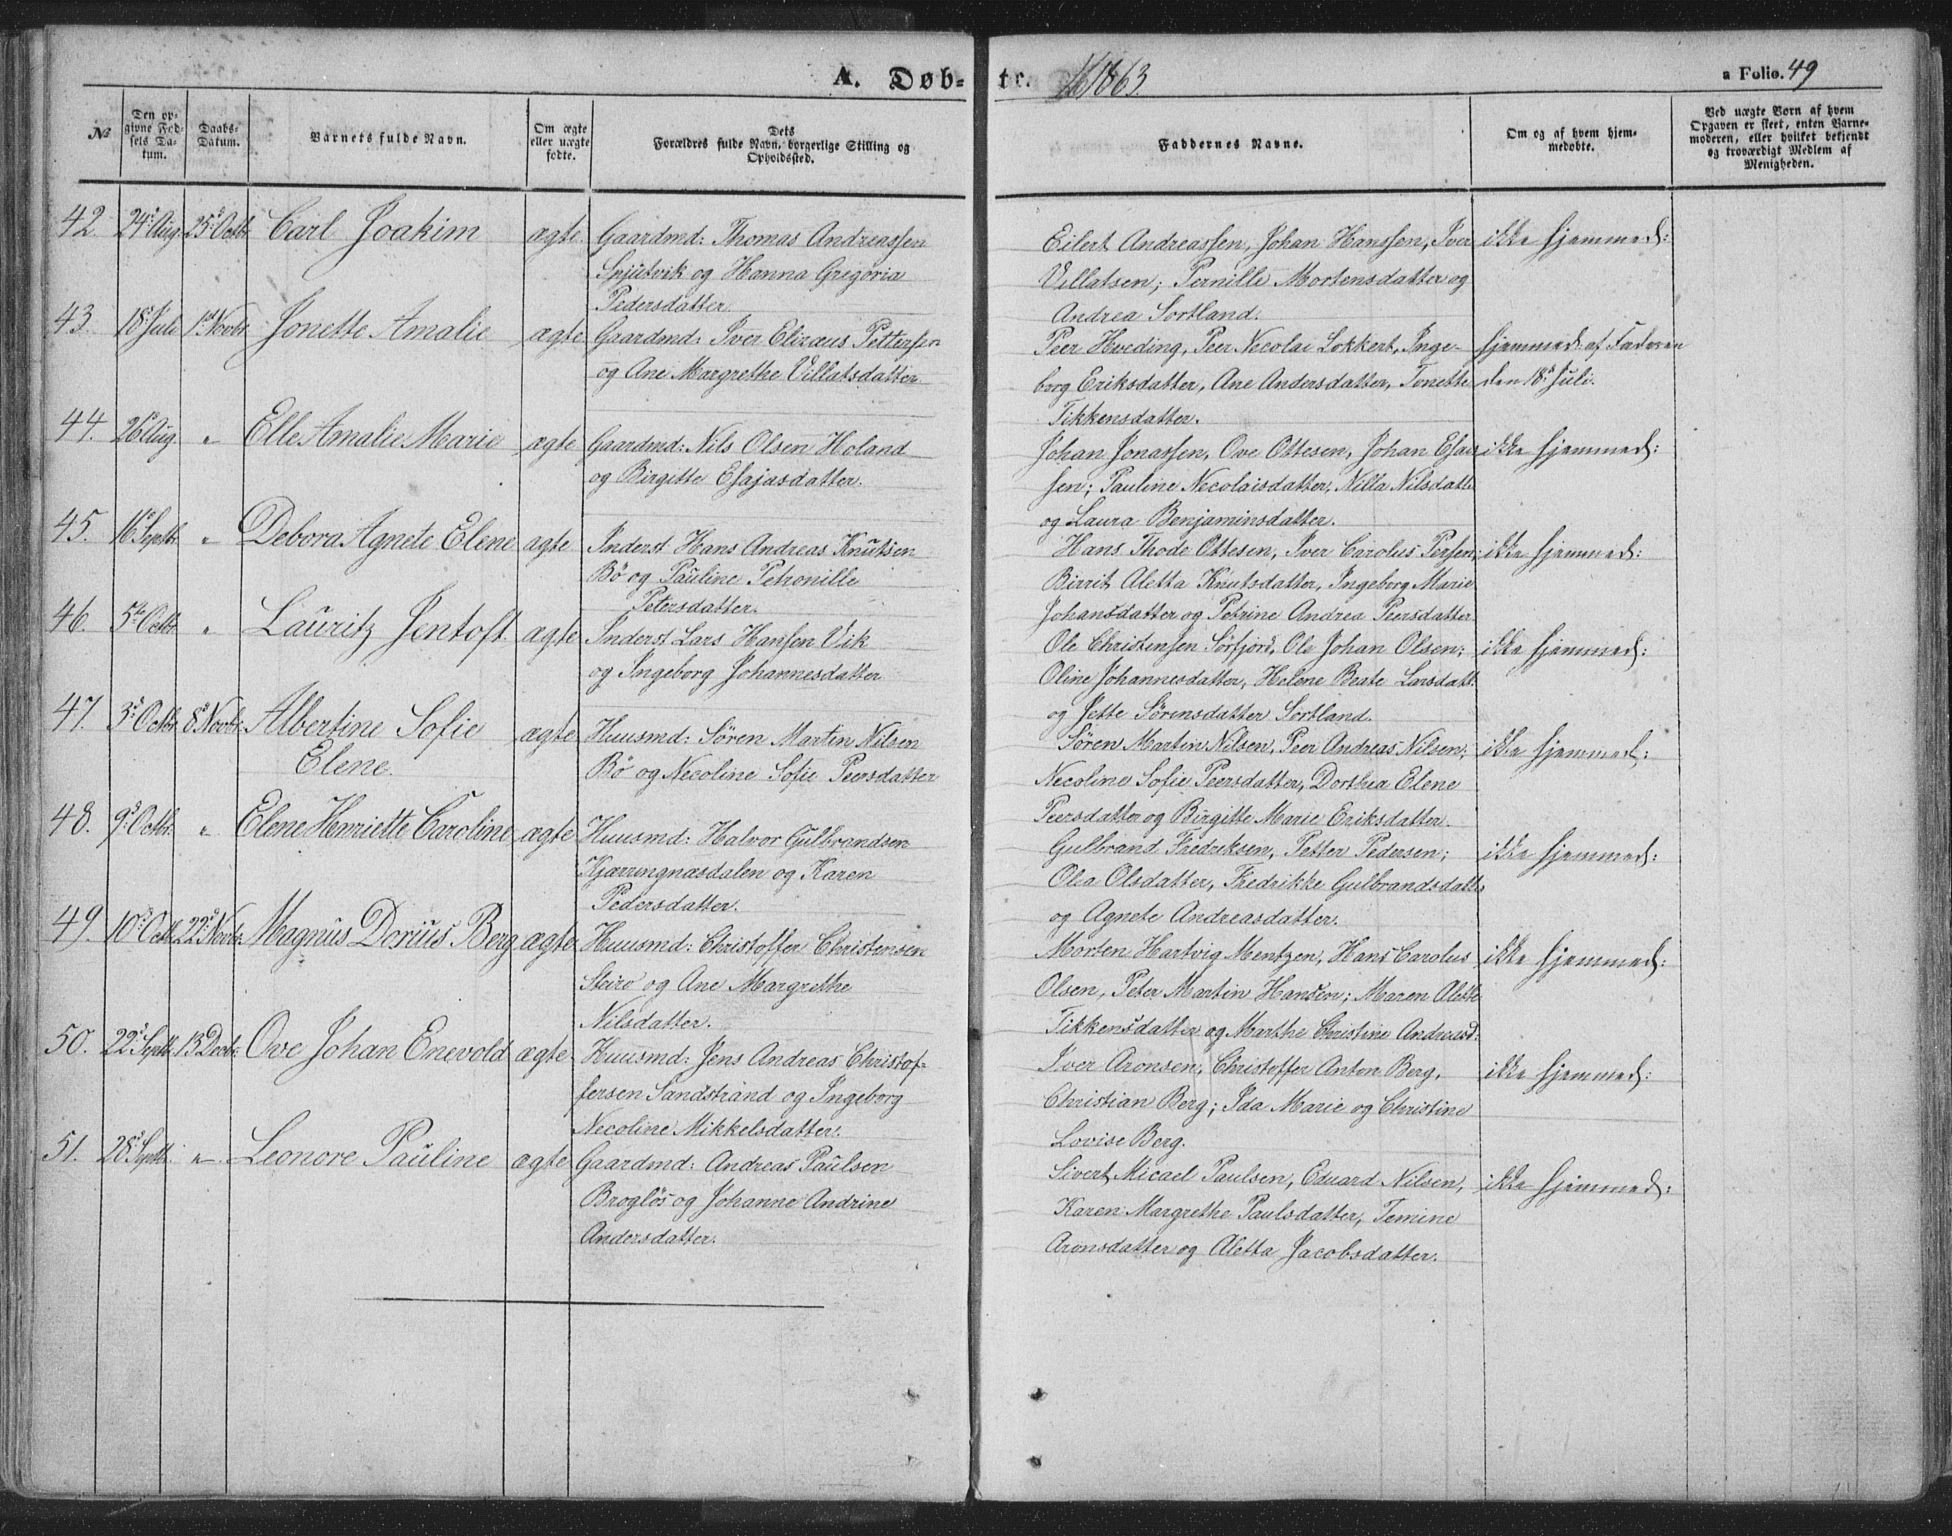 A. Døb-
te. 1863.
a Folio. 49
№
Den op-
givne Fød-
sels Da-
tum.
Daabs-
Datum.
Barnets fulde Navn.
Om ægte
eller uægte
fødte.
Dets
Forældres fulde Navn, borgerlige Stilling og
Opholdssted.
Faddernes Navne.
Om og af hvem hjem-
medøbte.
Ved uægte Børn af hvem
Opgaven er skeet, enten Barne-
moderen, eller hvilket bekjendt
og troværdigt Medlem af
Menigheden.
42. 24de Aug. 25de Octbr. Carl Joakim ægte Gaardmd: Thomas Andreassen
og Hanna Gregoria
Pedersdatter.
Eilert Andreassen, Johan Hanssen, Iver ikke hjemmed:
Villatsen; Pernille Mortensdatter og
Andrea Sortland.
43. 18de Juli 1ste Novbr. Jonette Amalie ægte Gaardmd: Iver Elizæus Pettersen
og Ane Margrethe Villatsdatter
Peer Hveding, Peer Necolai Lokkert, Inge- hjemmed: af Faderen
borg Eriksdatter, Ane Andersdatter, Tonette den 18de Juli.
Tikkensdatter.
44. 26de Aug. " Elle Amalie Marie ægte Gaardmd: Nils Olsen Holand
og Birgitte Esajasdatter.
Johan Jonassen, Ove Ottesen, Johan Esais ikke hjemmed:
sen; Pauline Necolaisdatter, Nilla Nilsdatt.
og Laura Benjaminsdatter.
45. 16de Septbr. " Debora Agnete Elene ægte Inderst Hans Andreas Knutsen
Bø og Pauline Petronille
Petersdatter.
Hans Thode Ottesen, Iver Carolus Persen; ikke hjemmed:
Birrit Aletta Knutsdatter, Ingeborg Marie
Johansdatter og Petrine Andrea Peersdatter
46. 5te Octbr. " Lauritz Jentoft ægte Inderst Lars Hansen Vik
og Ingeborg Johannesdatter
Ole Christensen Sørfjord, Ole Johan Olsen; ikke hjemmed:
Oline Johannesdatter, Helene Beate Larsdatt.
og Jette Sörensdatter Sortland.
47. 3de Octbr. 8de Novbr. Albertine Sofie
Elene. ægte Huusmd: Sören Martin Nilsen
Bö og Necoline Sofie Peersdatter
Sören Martin Nilsen, Peer Andreas Nilsen; ikke hjemmed:
Necoline Sofie Peersdatter, Dorthea Elene
Peersdatter og Birgitte Marie Eriksdatter.
48. 9de Octbr. " Elene Henriette Caroline ægte Huusmd: Halvor Gulbrandsen
Kjærringnæsdalen og Karen
Pedersdatter.
Gulbrand Fredriksen, Petter Pedersen; ikke hjemmed:
Olea Olsdatter, Fredrikke Gulbrandsdatt.
og Agnete Andreasdatter.
49. 10de Octb. 22de Novbr. Magnus Dorius Berg ægte Huusmd: Christoffer Christensen
Steiro og Ane Margrethe
Nilsdatter.
Morten Hartvig Mentzen, Hans Carolus ikke hjemmed:
Olsen, Peter Martin Hansen; Maren Alette
Tikkensdatter og Marthe Christine Andreasd:
50. 22de Septbr. 13de Decbr. Ove Johan Enevold ægte Huusmd: Jens Andreas Christof-
fersen Sandstrand og Ingeborg
Necoline Mikkelsdatter.
Iver Aronsen, Christoffer Anton Berg, ikke hjemmed:
Christian Berg; Ida Marie og Christine
Lovise Berg.
51. 28de Septb. " Leonore Pauline ægte Gaardmd: Andreas Paulsen
Brogløs og Johanne Andrine
Andersdatter.
Sivert Micael Paulsen, Eduard Nilsen, ikke hjemmed:
Karen Margrethe Paulsdatter, Temine
Aronsdatter og Aletta Jacobsdatter.